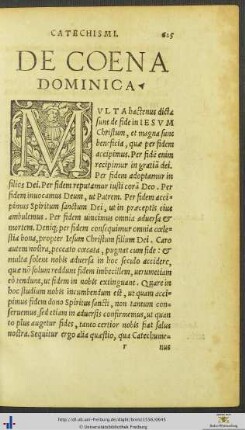 CATECHISMI. 615
DE COENA
DOMINICA
MVLTA hactenus dicta
sunt de fide in IESVM
Christum, et magna sane
beneficia, quæ per fidem
accipimus. Per fidẽ enim
recipimur in gratiã dei.
Per fidem adoptamur in
filios Dei. Per fidem reputamur iusti corã Deo. Per
fidem inuocamus Deum, ut Patrem. Per fidem acci⸗
pimus Spiritum sanctum Dei, ut in præceptis eius
ambulemus. Per fidem uincimus omnia aduersa &
mortem. Deniq; per fidem consequimur omnia cœle⸗
stia bona, propter Iesum Christum filium Dei. Caro
autem nostra, peccato cæcata, pugnat cum fide: &
multa solent nobis aduersa in hoc seculo accidere,
quæ nõ solum reddunt fidem imbecillem, uerumetiam
eò tendunt, ut fidem in nobis extinguant. Quare in
hoc studium nobis incumbendum est, ut quam acci⸗
pimus fidem dono Spiritus sancti, non tantum con⸗
seruemus, sed etiam in aduersis confirmemus, ut quan
to plus augetur fides, tanto certior nobis fiat salus
nostra. Sequitur ergo alia quæstio, qua Catechume⸗
r nus
© Universitätsbibliothek Freiburg